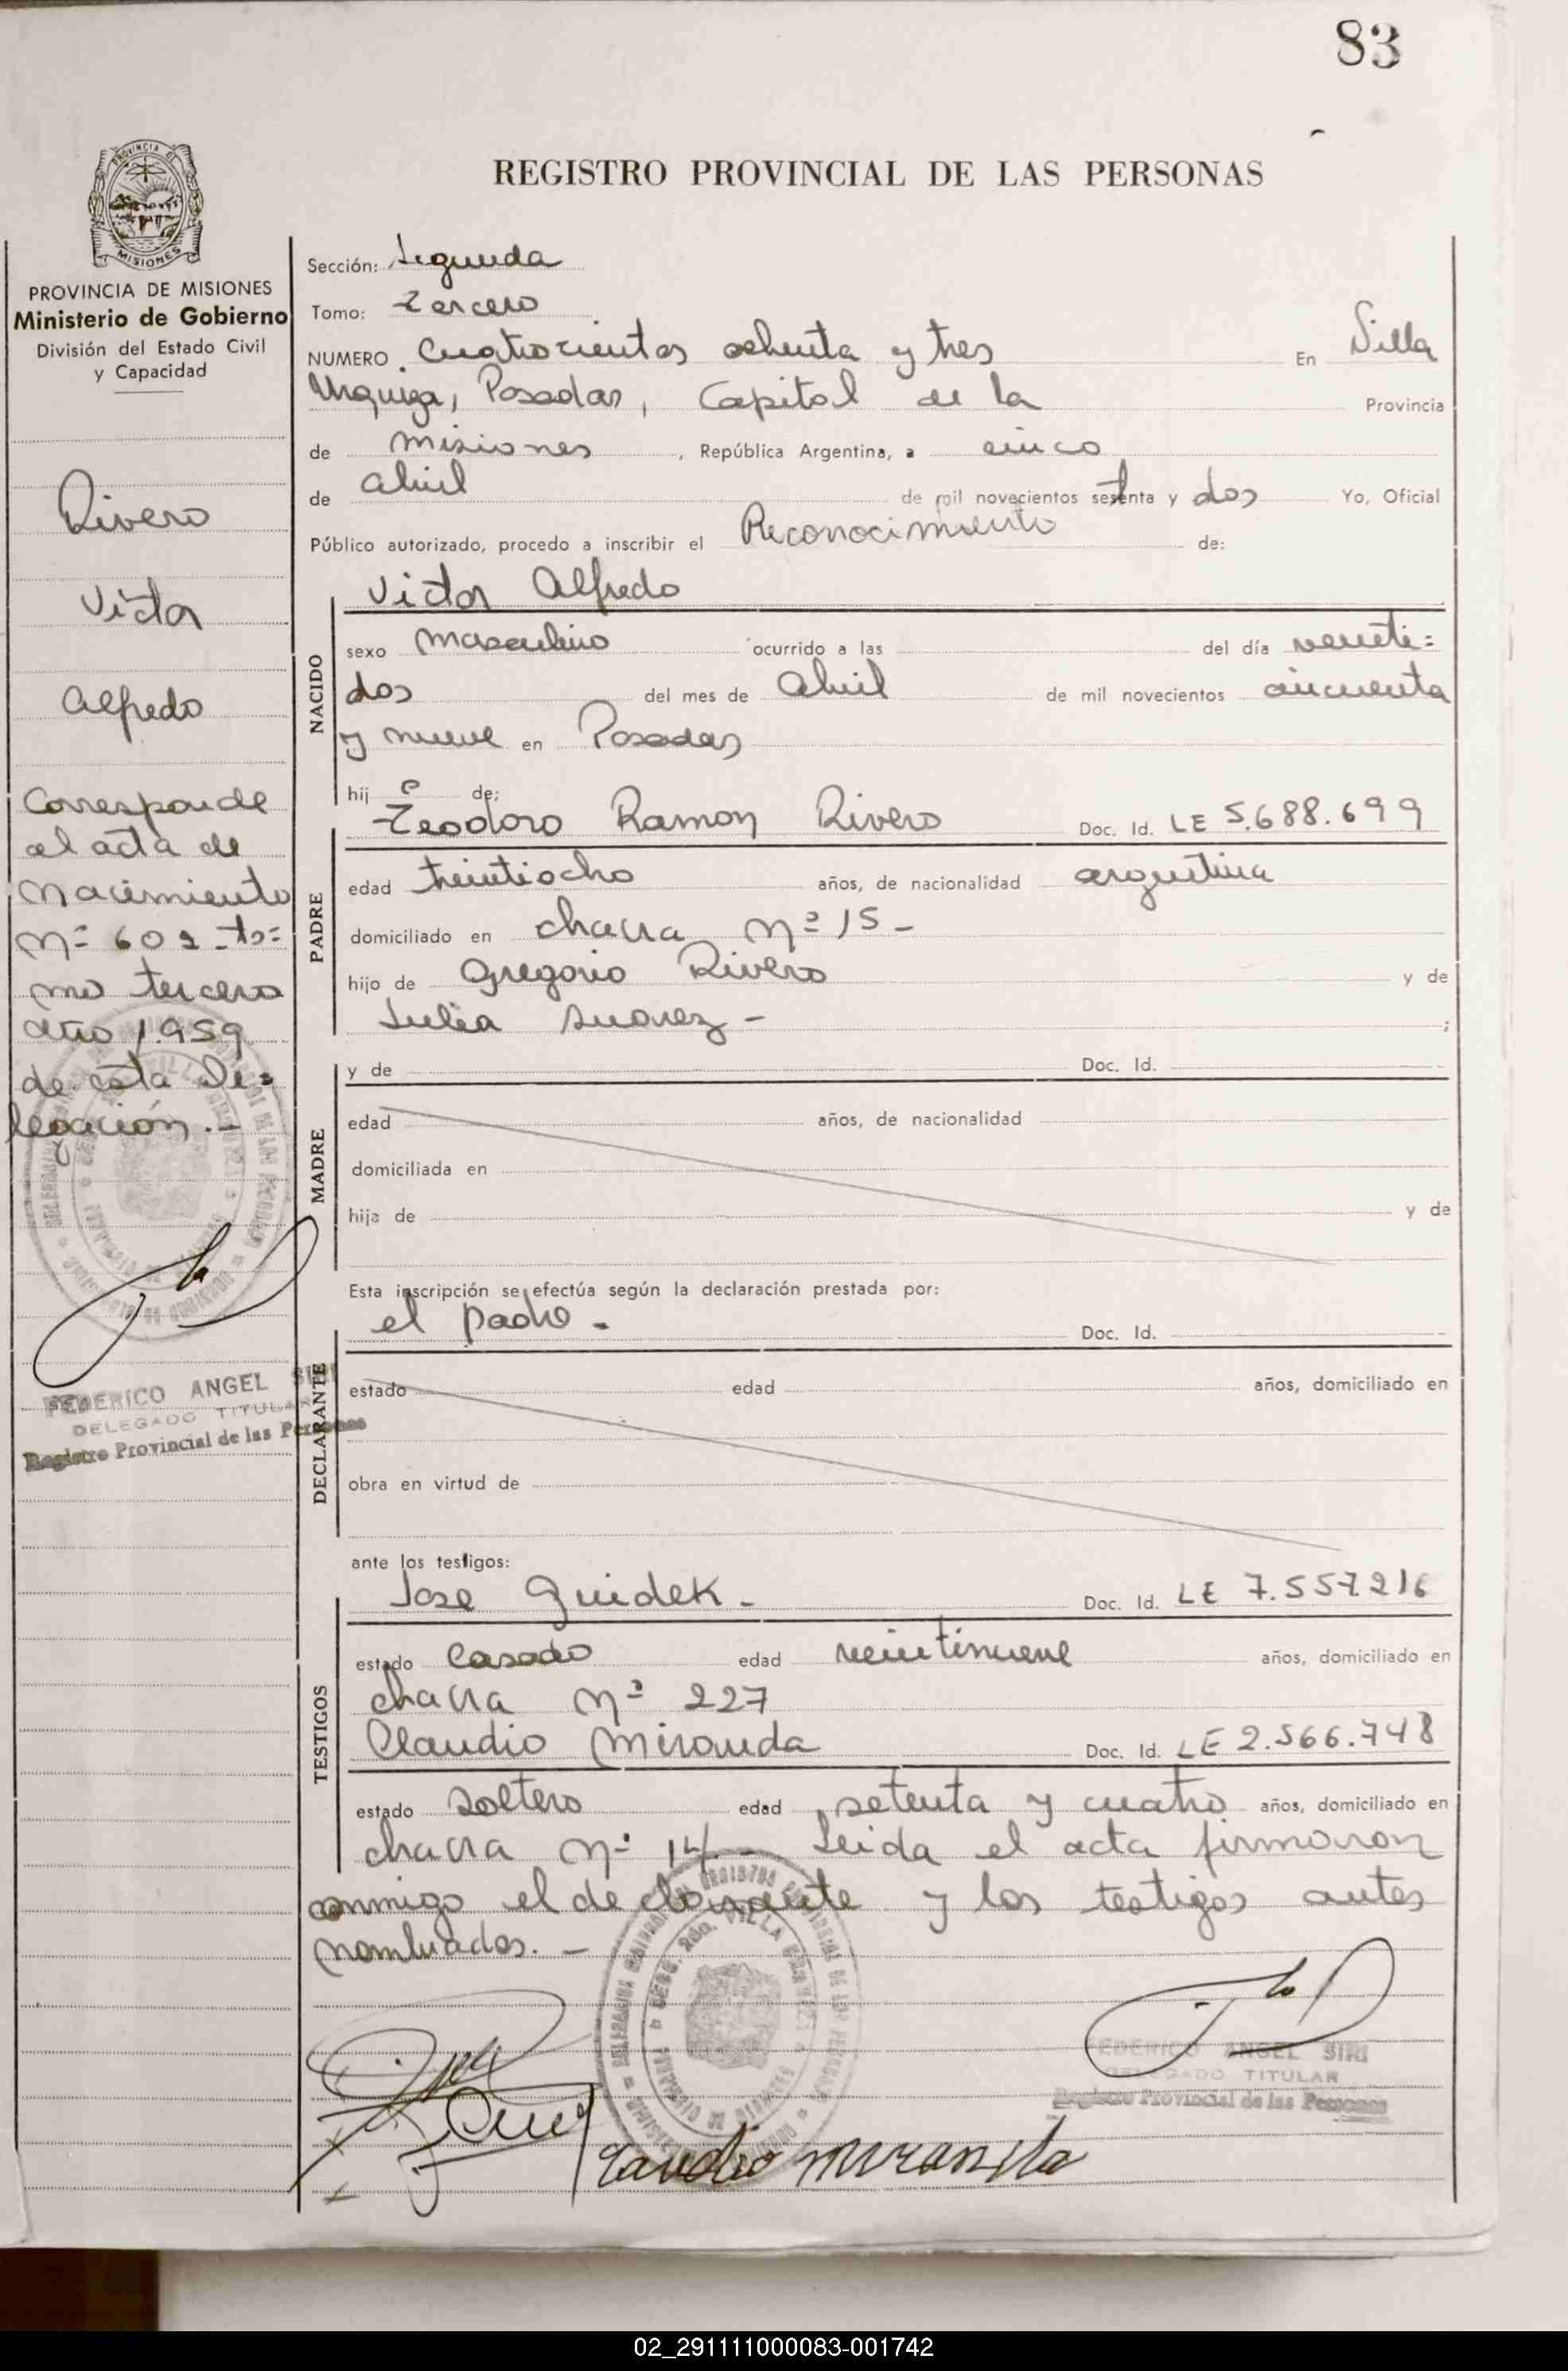 83
REGISTRO PROVINCIAL DE LAS PERSONAS
PROVINCIA DE MISIONES
Ministerio de Gobierno
División del Estado Civil
y Capacidad
Rivero
Victor
Alfredo
Corresponde
al acta de
Nacimiento
Nº 602 - to=
mo tercero
año 1.959
de esta De=
legación.-
FEDERICO ANGEL SIRI
DELEGADO TITULAR
Registro Provincial de las Personas
Sección: Segunda
Tomo: Tercero
NUMERO Cuatrocientos ochenta y tres En Villa
Urquiza, Posadas, Capital de la Provincia
de Misiones, República Argentina, a cinco
de abril de mil novecientos setenta y dos Yo, Oficial
Público autorizado, procedo a inscribir el Reconocimiento de:
Victor Alfredo
NACIDO
sexo masculino ocurrido a las del día veinti=
dos del mes de Abril de mil novecientos cincuenta
y nueve en Posadas
hij o de:
Teodoro Ramon Rivero Doc. Id. LE 5.688.699
PADRE
edad treintiocho años, de nacionalidad argentina
domiciliado en chacra Nº 15 -
hijo de Gregorio Rivero y de
Julia Suarez - ;
y de Doc. Id.
MADRE
edad años, de nacionalidad
domiciliada en
hija de y de
Esta inscripción se efectúa según la declaración prestada por:
el padre - Doc. Id.
DECLARANTE
estado edad años, domiciliado en
obra en virtud de
ante los testigos:
Jose Guidek - Doc. Id. LE 7.557216
TESTIGOS
estado Casado edad veintinueve años, domiciliado en
chacra Nº 227
Claudio Miranda Doc. Id. LE 2.566.748
estado soltero edad setenta y cuatro años, domiciliado en
chacra Nº 14.- Leida el acta firmaron
conmigo el declarante y los testigos antes
nombrados. -
FEDERICO ANGEL SIRI
DELEGADO TITULAR
Registro Provincial de las Personas
Claudio Miranda
02_291111000083-001742